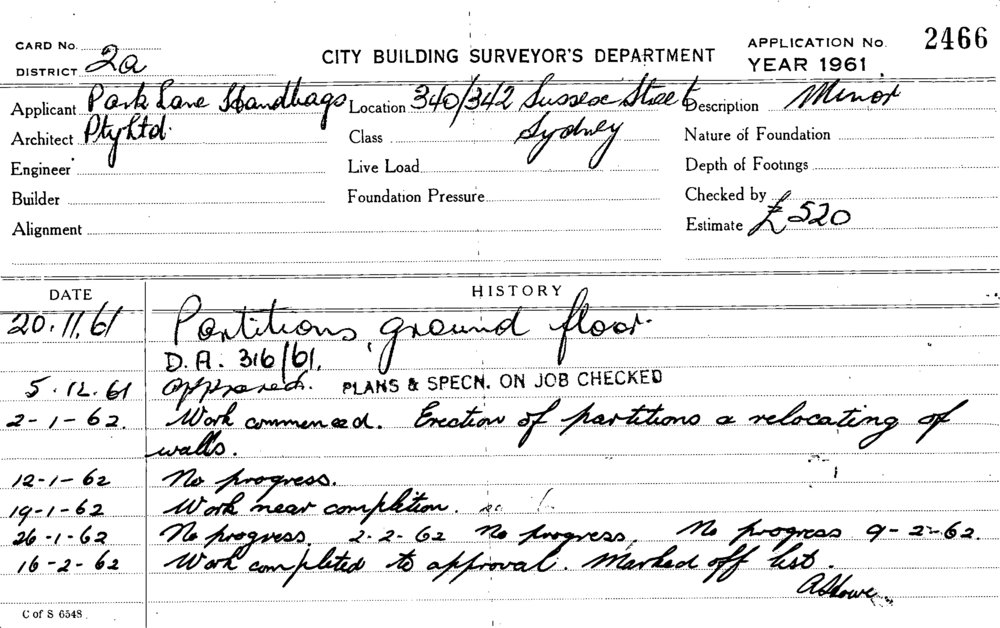 CARD No.
DISTRICT 2a
CITY BUILDING SURVEYOR'S DEPARTMENT
APPLICATION No. 2466
YEAR 1961
Applicant Park Lane Handbags Location 340/342 Sussex Street Description Minor
Architect Pty Ltd. Class Sydney Nature of Foundation
Engineer Live Load Depth of Footings
Builder Foundation Pressure Checked by
Alignment Estimate £520
DATE HISTORY
20.11.61 Partitions, ground floor.
D.A. 316/61.
5.12.61 Approved. PLANS & SPECN. ON JOB CHECKED
2-1-62. Work commenced. Erection of partitions & relocating of
walls.
12-1-62 No progress.
19-1-62 Work near completion.
26-1-62 No progress. 2-2-62 No progress. No progress 9-2-62.
16-2-62 Work completed to approval. Marked off list.
C of S 6548